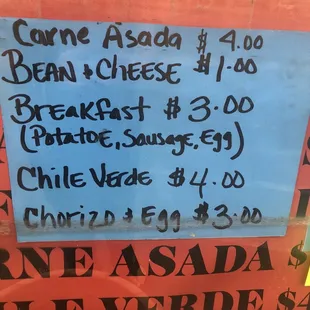 Carne Asada $ 4.00
BEAN + CHEESE $1.00
Breakfast $ 3.00
(Potatoe, Sausage, Egg)
Chile Verde $4.00
Chorizo + Egg $3.00
RNE ASADA $
LE VERDE $4